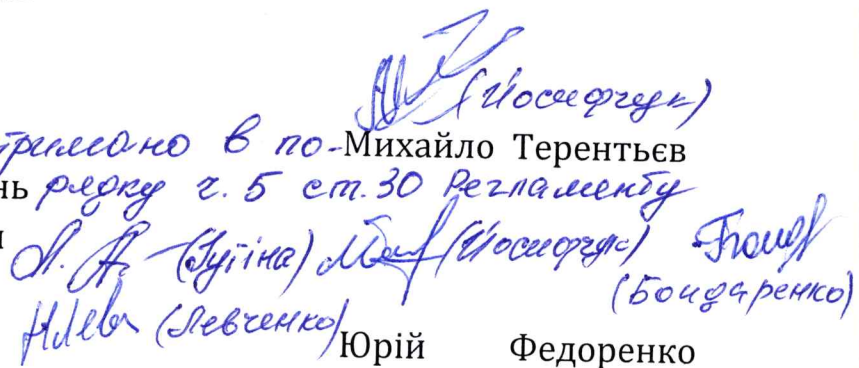 (Йосифчук)
тримано в по- Михайло Терентьєв
нь рядку ч. 5 ст. 30 Регламенту
(Йосифчук)
(Бондаренко)
(Левченко)
Юрій Федоренко